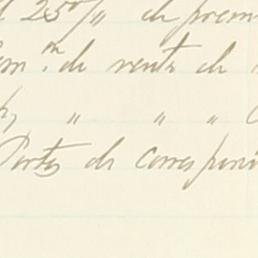 25 % de prem
om.m de venta de
" " "
Portes de Correspon